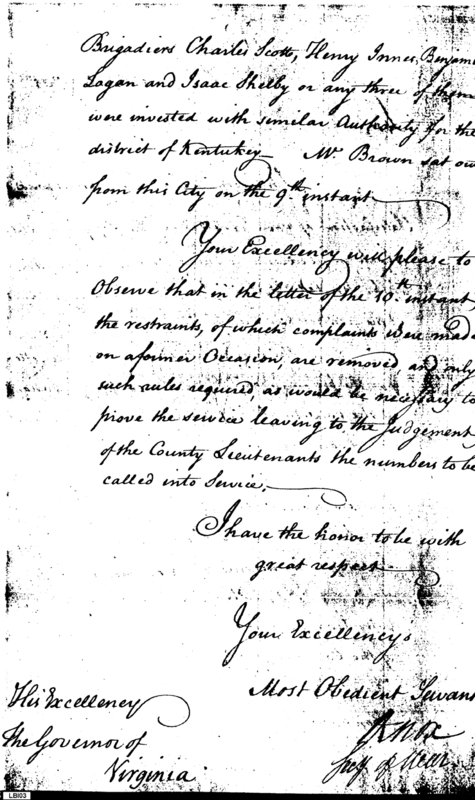 Brigadiers Charles Scott, Henry Innes, Benjami
Logan and Isaac Shelby or any three of them
were invested with similar Authority for the
district of Kentukey — Mr. Brown sat ou
from this City on the 9th instant
Your Excellency will please to
Observe that in the letter of the 10th instant,
the restraints, of which complaints were made
on a former Occasion, are removed, and only
such rules required, as would be necessary to
prove the service leaving to the Judgement
of the County Lieutenants the numbers to be
called into Service.
I have the honor to be with
great respect
Your Excellency's
Most Obedient Servan
HKnox
Secy of War
His Excellency
The Governor of
Virginia
LBI03